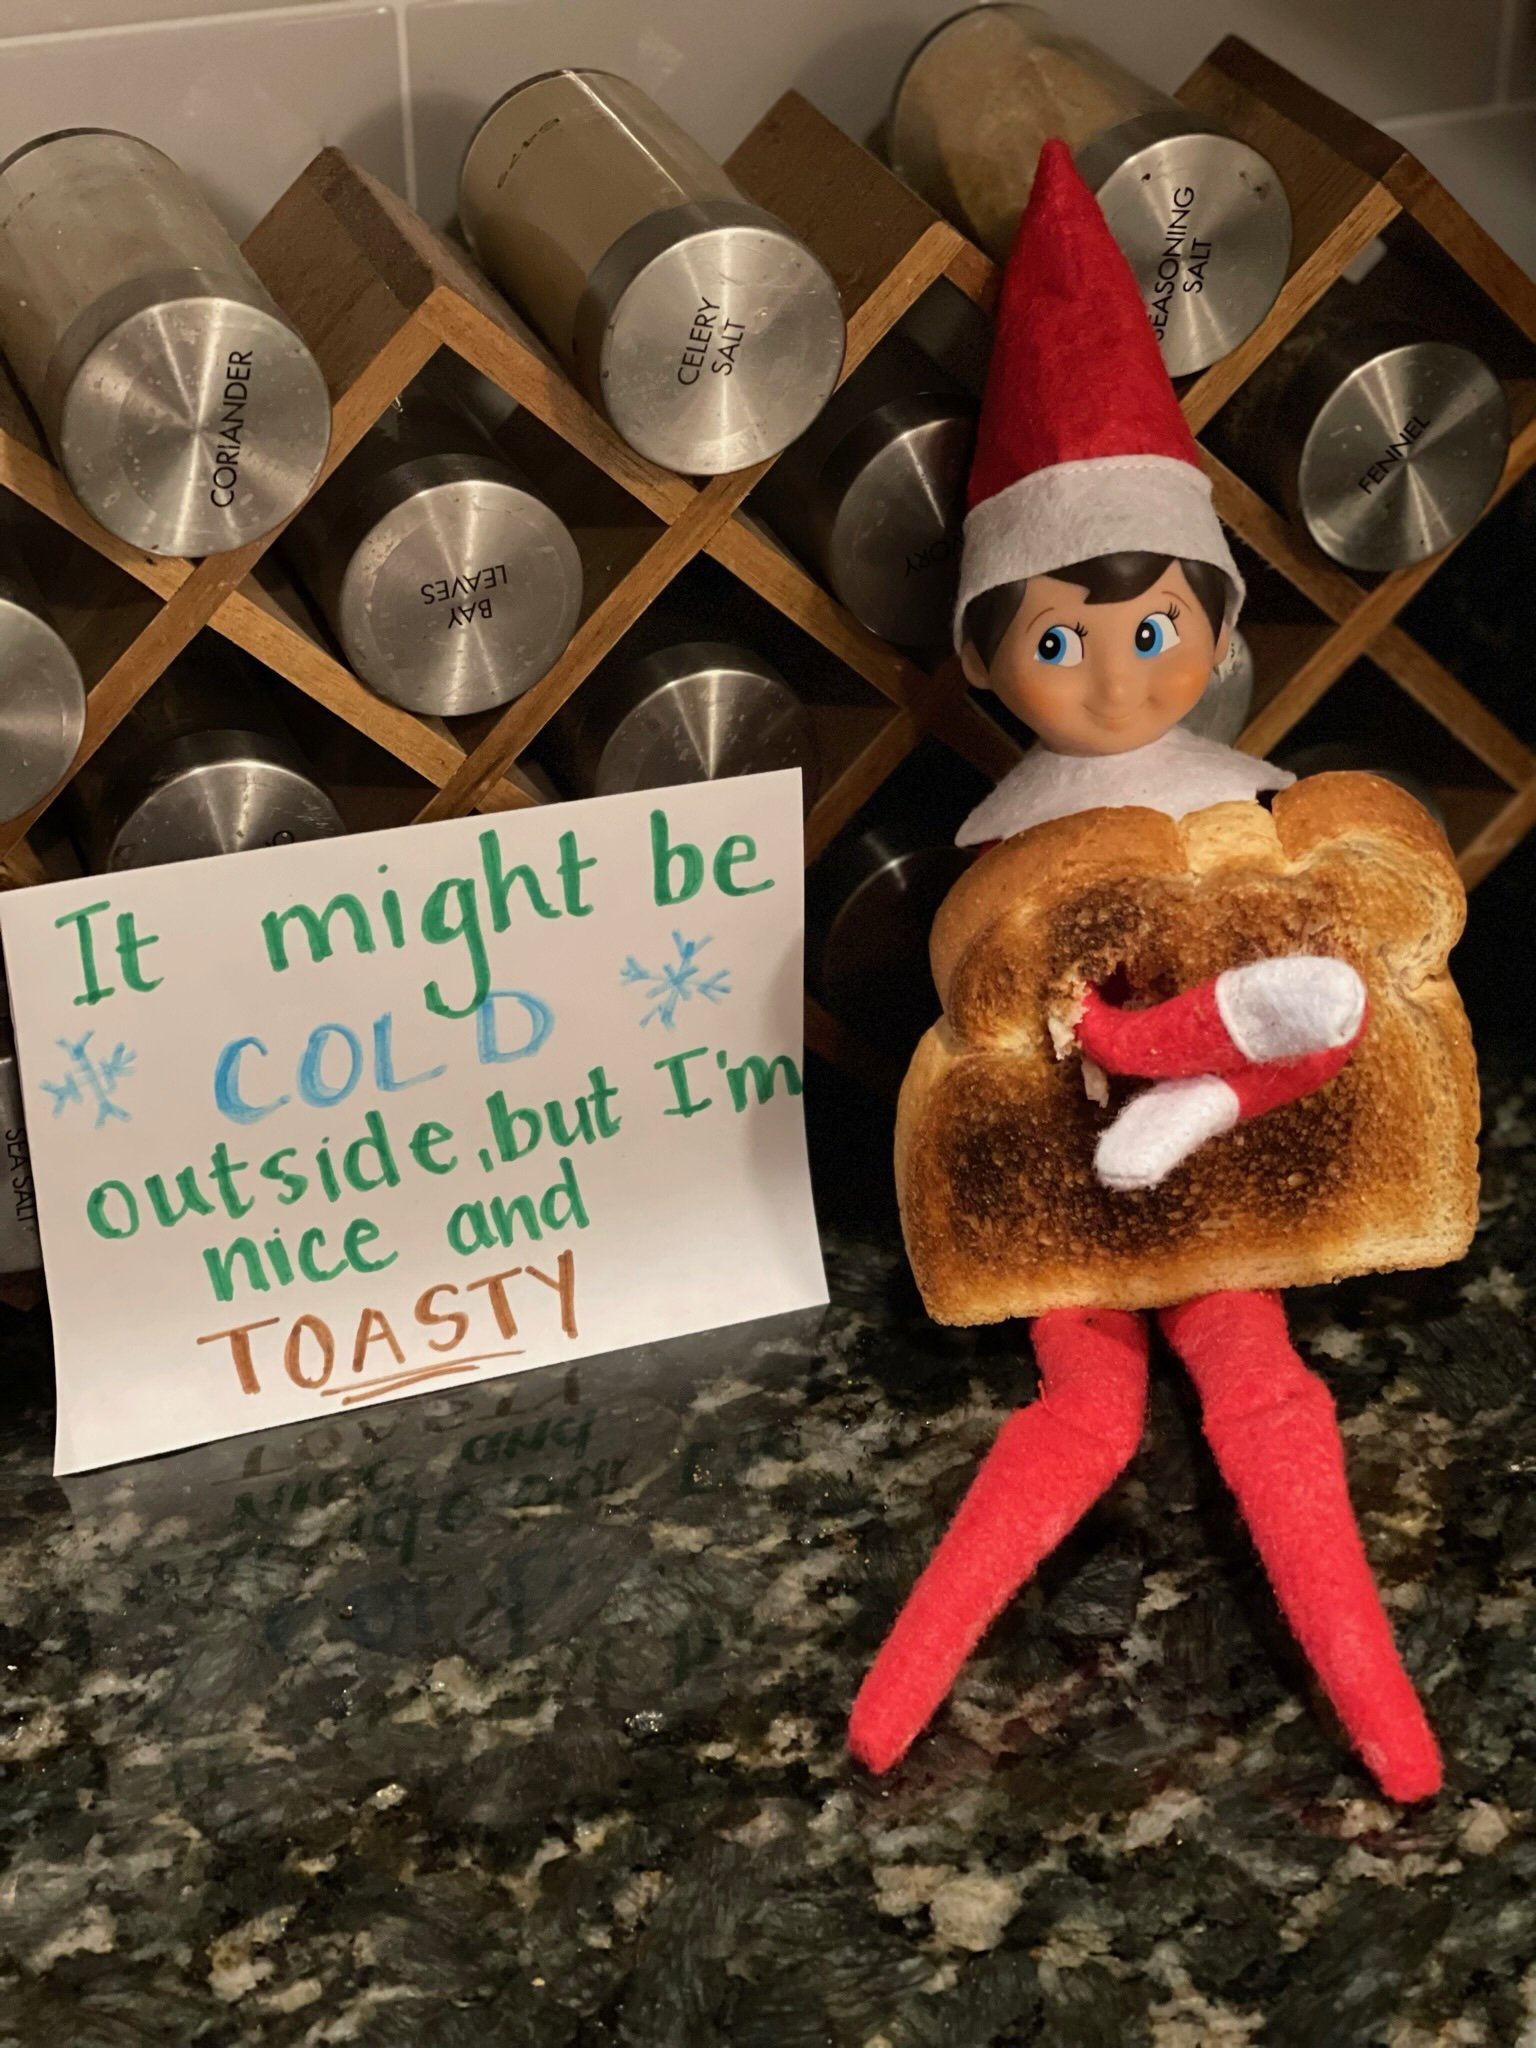 CORIANDER
CELERY
SALT
SEASONING
SALT
BAY
LEAVES
FENNEL
SEA SALT
It might be
COLD
outside, but I'm
nice and
TOASTY